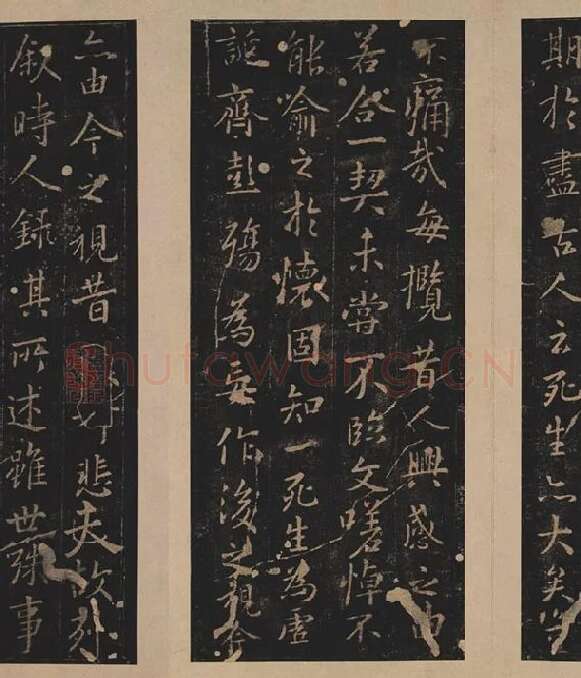 期於盡古人云死生亦大矣豈
不痛哉每攬昔人興感之由
若合一契未嘗不臨文嗟悼不
能喻之於懷固知一死生為虛
誕齊彭殤為妄作後之視今
亦由今之視昔悲夫故列
叙時人錄其所述雖世殊事
shufawang.CN